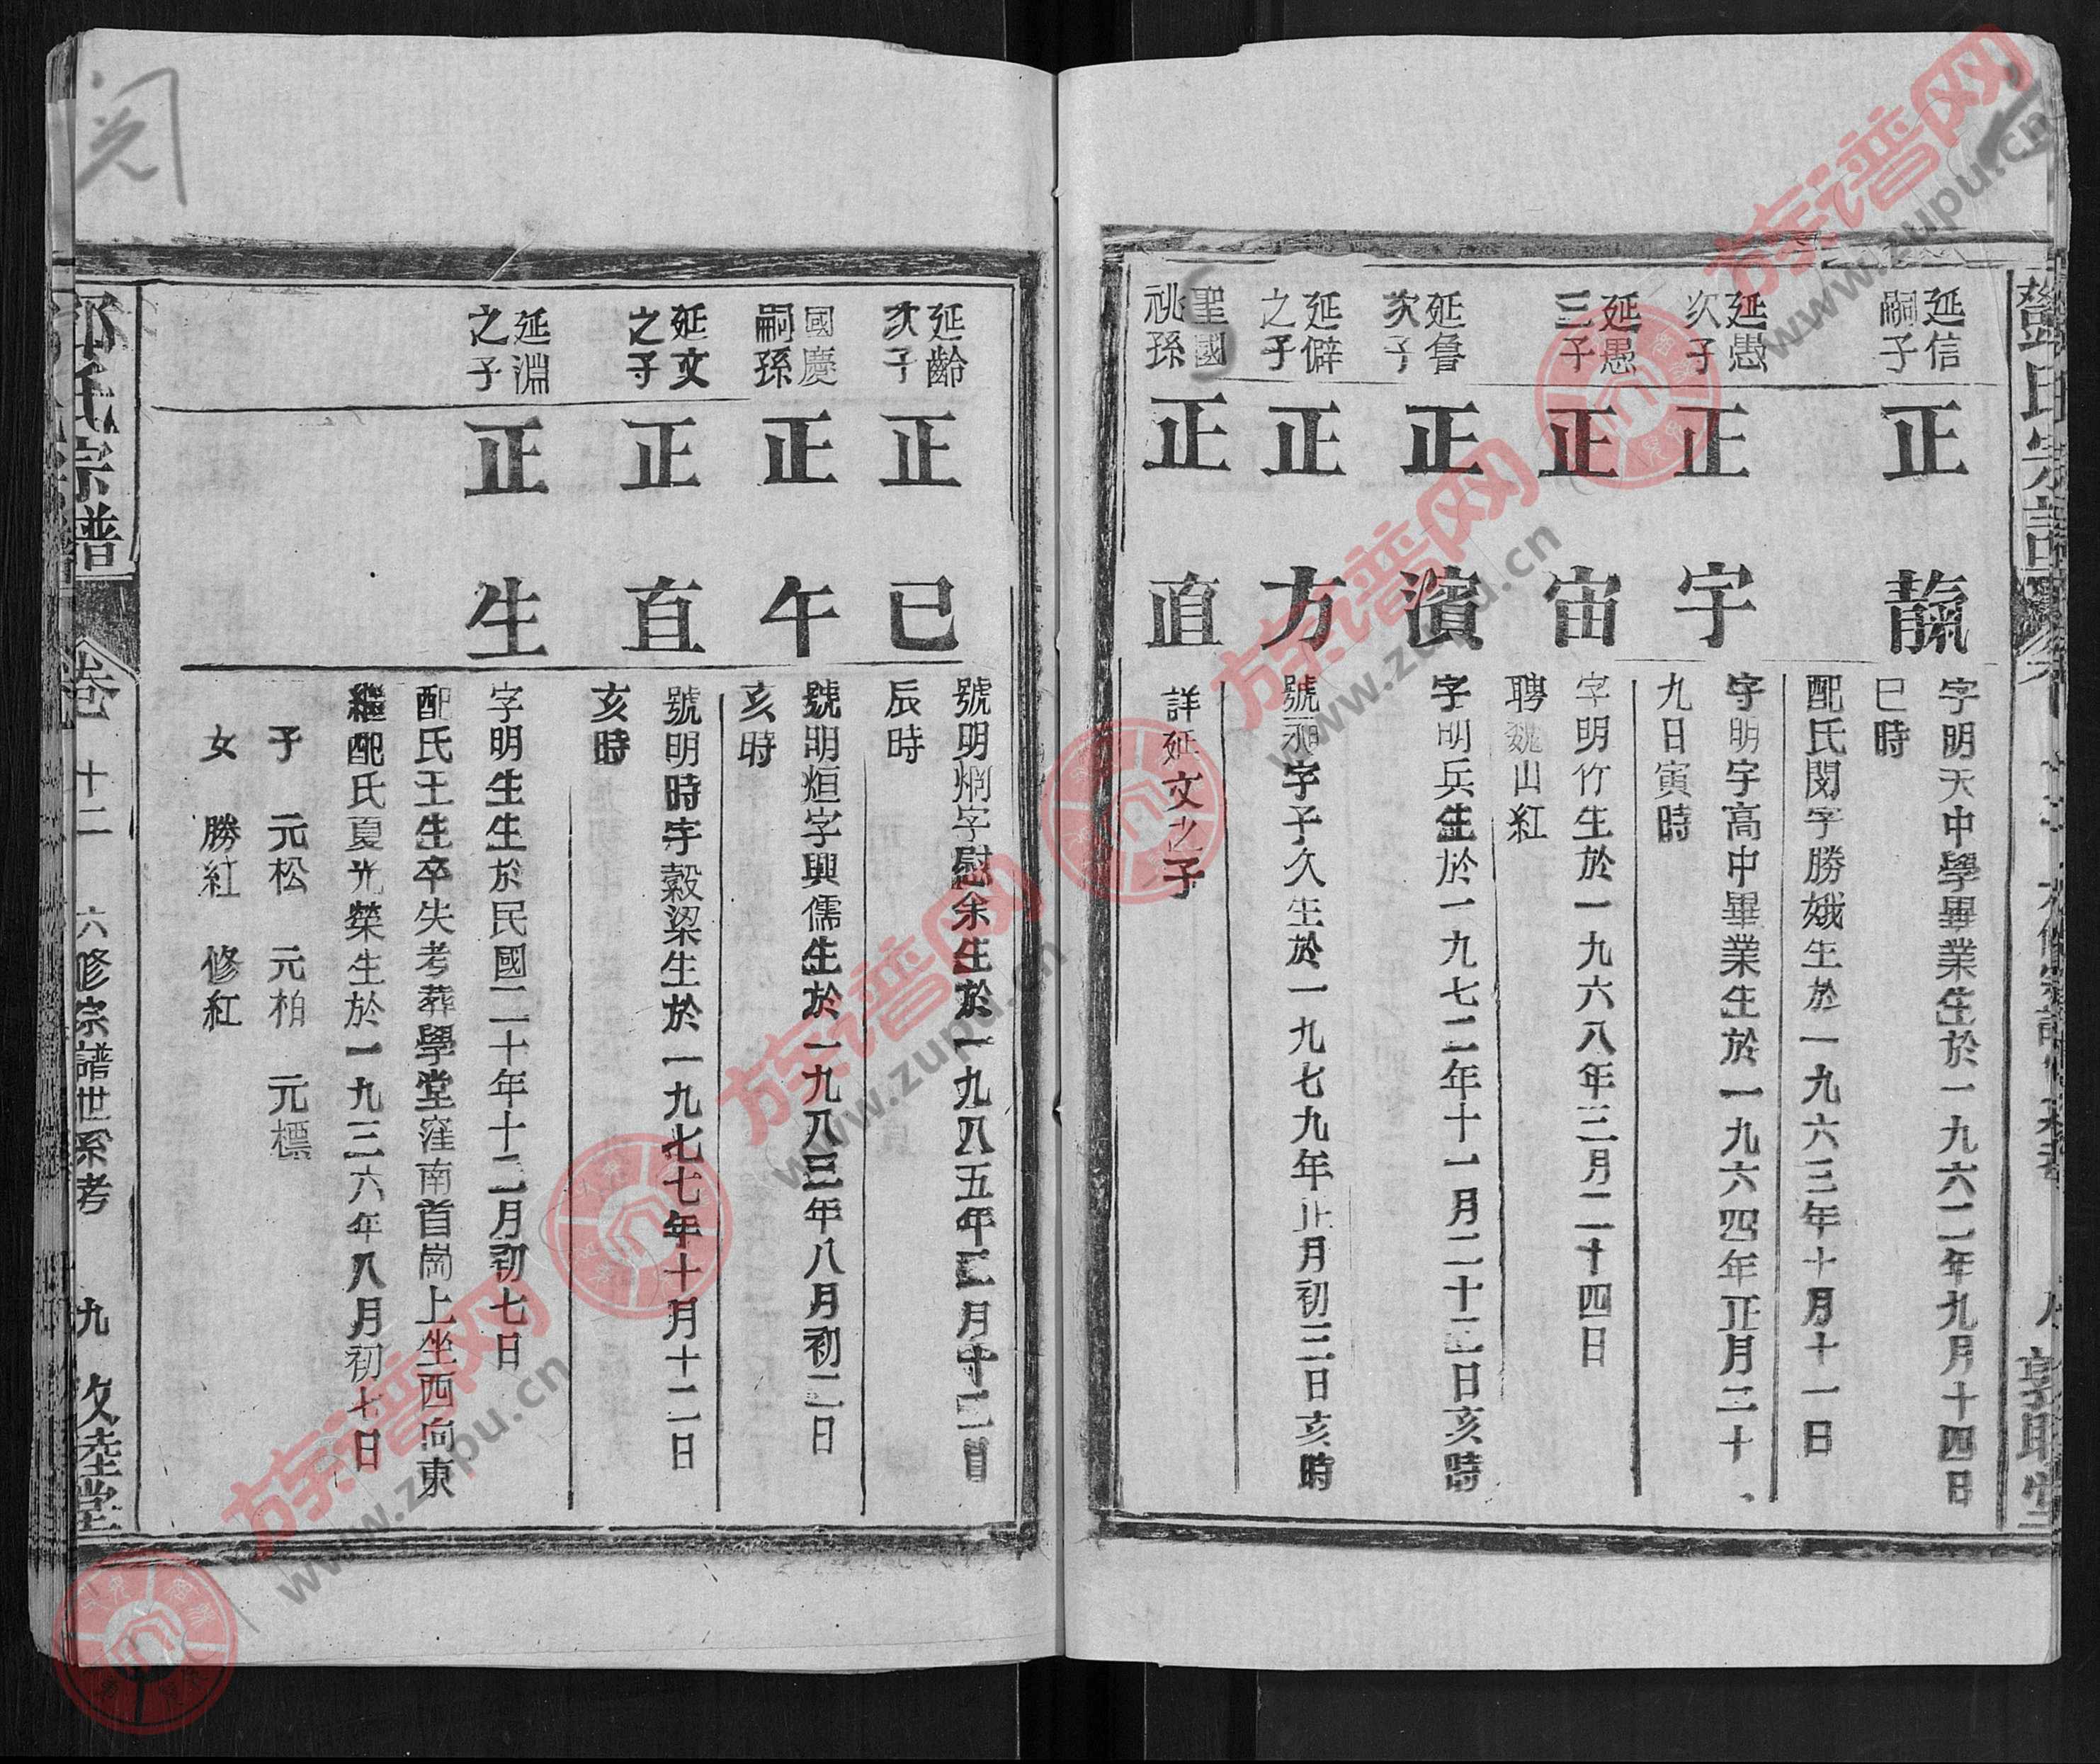 延信
嗣子
正
字明天中學畢業生於一九六二年九月十四日
巳時
配氏閔字勝娥生於一九六三年十月十一日
延愚
次子
正宇
字明宇高中畢業生於一九六四年正月三十
九日寅時
延愚
三子
正宙
字明竹生於一九六八年三月二十四日
聘魏山紅
延魯
次子
正濱
字明兵生於一九七二年十一月二十二日亥時
延僻
之子
正方
號字予久生於一九七九年正月初三日亥時
聖國
祧孫
正直
詳延文之子
延齡
次子
正巳
號明炯字慰余生於一九八五年二月十二日
辰時
國慶
嗣孫
正午
號明烜字興儒生於一九八三年八月初二日
亥時
延文
之子
正直
號明時字穀梁生於一九七七年十月十二日
亥時
延淵
之子
正生
字明生生於民國二十年十二月初七日
配氏王生卒失考葬學堂窪南首崗上坐西向東
繼配氏夏光榮生於一九三六年八月初七日
子 元松 元柏 元標
女 勝紅 修紅
氏宗譜 卷十二 六修宗譜世系考 九 敦睦堂
阅
族谱网
www.zupu.cn
族谱网
www.zupu.cn
族谱网
www.zupu.cn
族谱网
www.zupu.cn